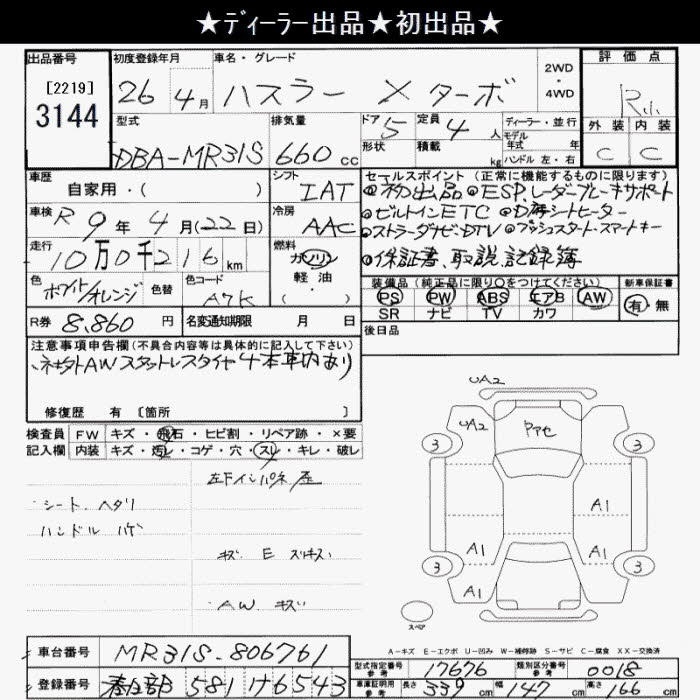 ★ディーラー出品★初出品★
出品番号 初度登録年月 車名・グレード 2WD・4WD 評価点
[2219]
3144
26年 4月 ハスラー Xターボ R小
外装 内装
C C
型式 排気量 ドア 定員 ディーラー・並行
5 4人 モデル年式 年
DBA-MR31S 660cc 形状 積載 kg ハンドル 左・右
車歴 シフト セールスポイント (正常に機能するものに限ります)
自家用・( ) IAT
●初出品●ESP.レーダーブレーキサポート
車検 R9年4月(22日) 冷房 AAC
●ビルトインETC ●D席シートヒーター
●ストラーダナビ・DTV●プッシュスタート・スマートキー
走行 10万0千216km 燃料 ガソリン 軽油 ( ・ )
●保証書、取説、記録簿
色 ホワイト/オレンジ 色替 色コード A7K
装備品(純正品に限り○をつけてください) 新車保証書
PS PW ABS エアB AW 有・無
SR ナビ TV カワ
R券 8,860円 名変通知期限 月 日
後日品
注意事項申告欄(不具合内容等は具体的に記入して下さい)
AWスタットレスタイヤ4本車内あり
修復歴 有 [箇所 ]
検査員記入欄 FW キズ・飛石・ヒビ割・リペア跡・×要
内装 キズ・汚レ・コゲ・穴・スレ・キレ・破レ
左下インパネ
シート ヘタリ
ハンドル ハゲ
キズ E スリキズ
AW キズ
UA2
UA2
アセ
3 3
A1
A1 A1
3 3
A1
スペア
A-キズ E-エクボ U-凹み W-補修跡 S-サビ C-腐食 XX-交換済
車台番号 MR31S-806761
型式指定番号 参考 17676 類別区分番号 参考 0018
登録番号 春日部 581 け6543
車庫証明用 参考 長さ 339cm 幅 147cm 高さ 166cm